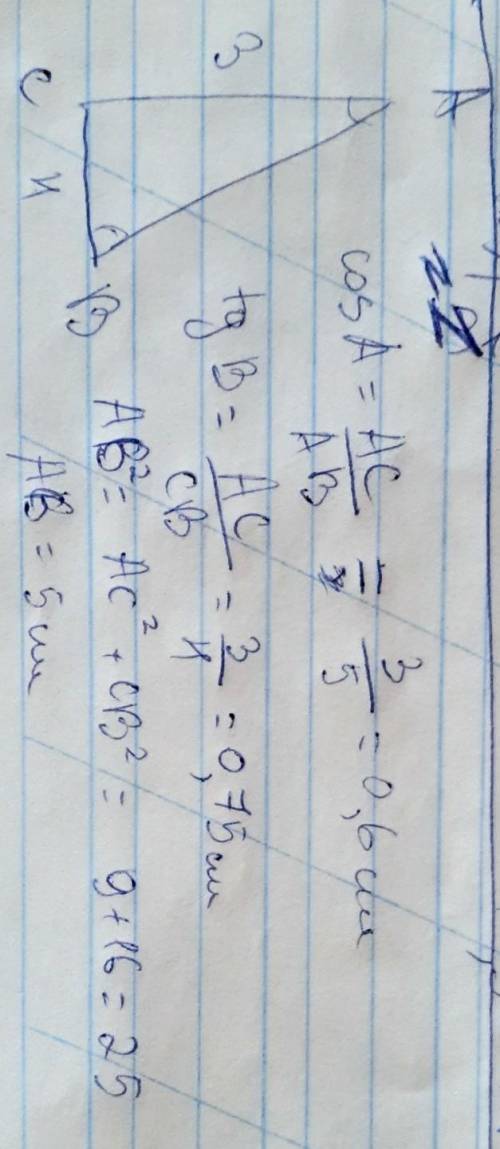 A
3
C
4
B
cos A = AC/AB = 3/5 = 0,6 см
tg B = AC/CB = 3/4 = 0,75 см
AB² = AC² + CB² = 9+16 = 25
AB = 5 см